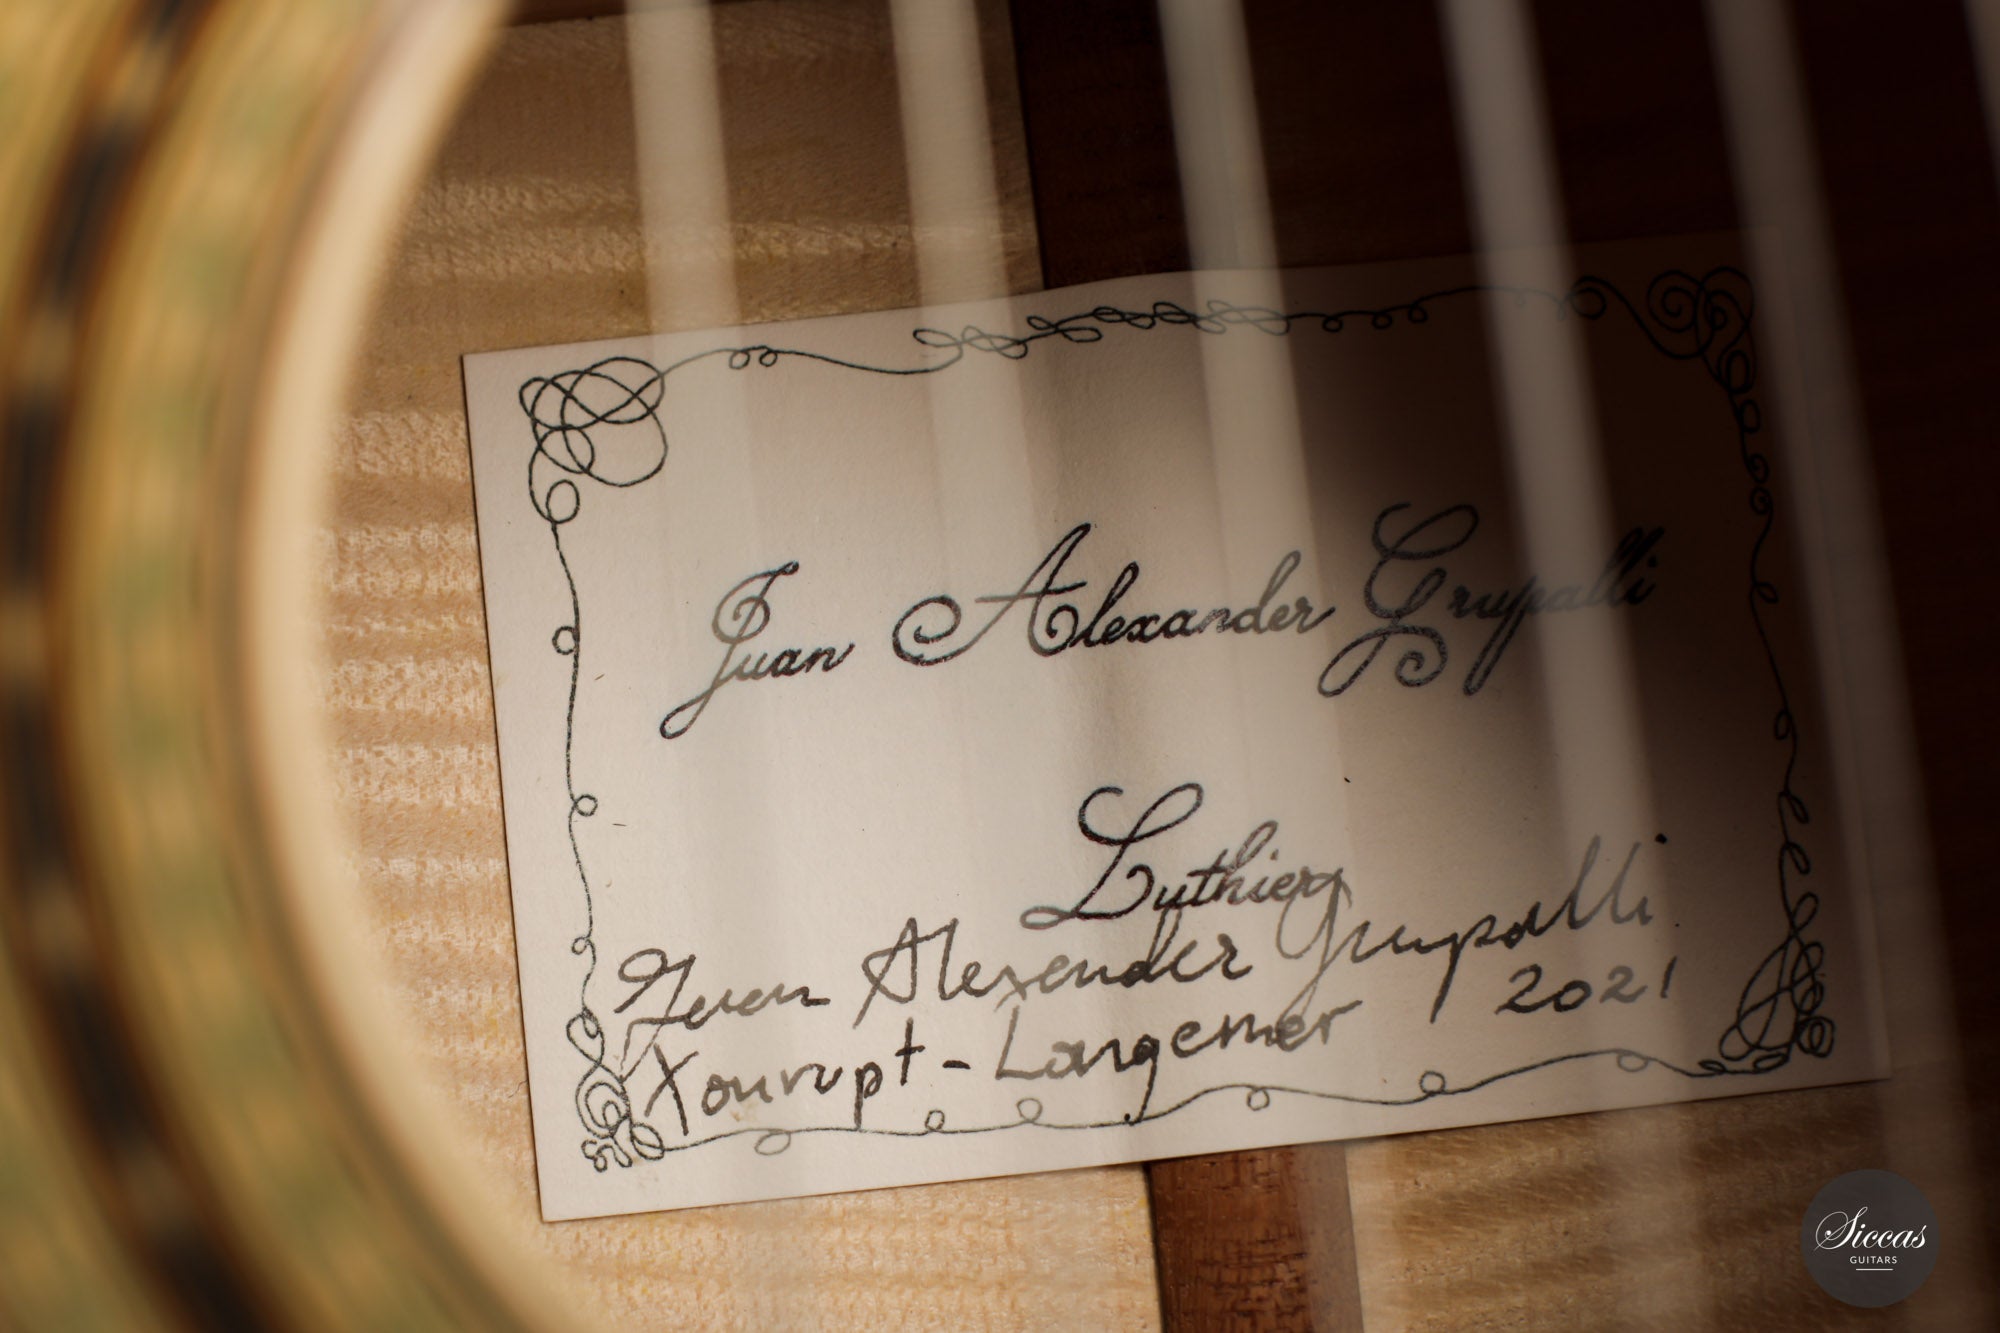 Juan Alexander Grupalli
Luthier
Juan Alexander Grupalli
Langemer 2021
Siccas
GUITARS